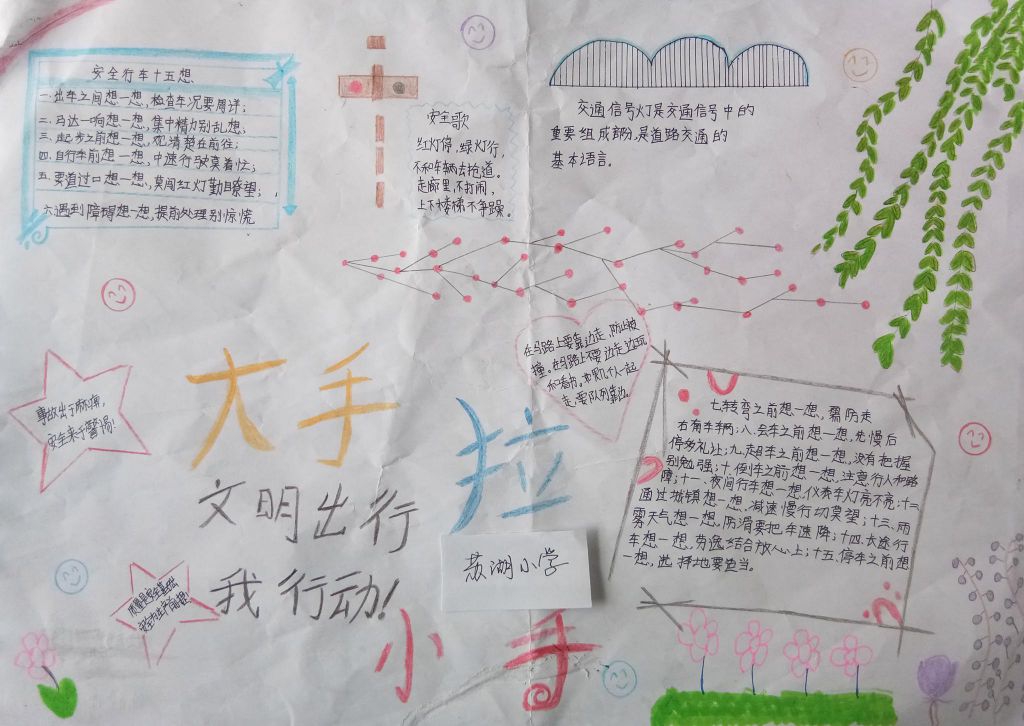 安全行车十五想
一.出车之间想一想,检查车况要周详;
二.马达一响想一想,集中精力别乱想,
三.起步之前想一想,观清楚在前往;
四.自行车前想一想,中速行驶莫着忙;
五.要道过口想一想,莫闯红灯勤瞭望;
六遇到障碍想一想,提前处理别惊慌
安全歌
红灯停,绿灯行,
不和车辆去抢道。
走廊里,不打闹,
上下楼梯不争躁。
交通信号灯是交通信号中的
重要组成部分,是道路交通的
基本语言。
在马路上要靠边走,防止被
撞。在马路上不要边走边玩
和看书。如果几个人一起
走,要队列靠边。
事故出于麻痹,
安全来于警惕!
大手
拉
小手
文明出行
我行动!
荔湖小学
质量是安全基础
安全为生产前提!
七.转弯之前想一想,需防走
右有车辆;八.会车之前想一想,先慢后
停多礼让;九.超车之前想一想,没有把握
别勉强;十.倒车之前想一想,注意行人和路
障;十一.夜间行车想一想,仪表车灯亮不亮;十二
通过城镇想一想,减速慢行切莫望;十三.雨
雾天气想一想,防滑要把车速降;十四.长途行
车想一想,劳逸结合放心上;十五.停车之前想
一想,选择地要妥当。